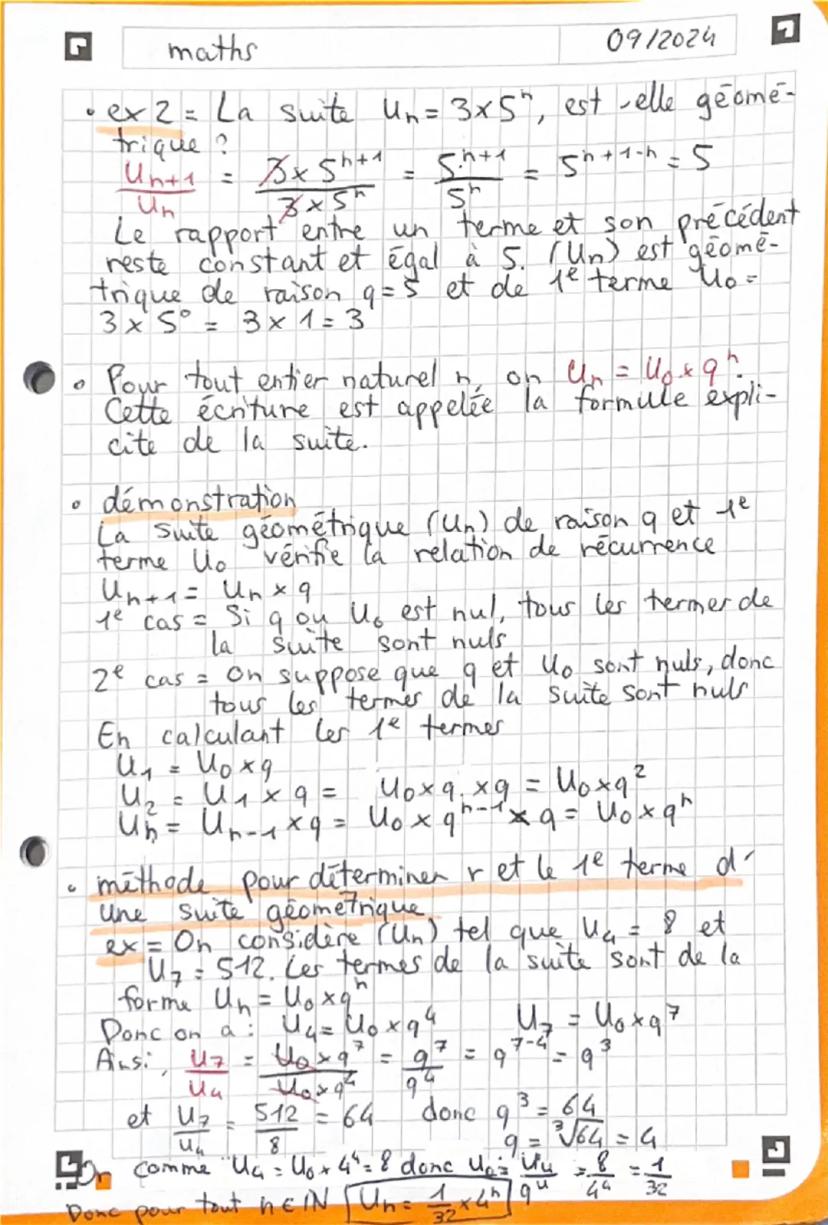 maths
09/2024
• ex 2 = La suite Un = 3 × 5ⁿ, est-elle géomé-
trique ?
Un+1/Un = 3 × 5ⁿ⁺¹/3 × 5ⁿ = 5ⁿ⁺¹/5ⁿ = 5ⁿ⁺¹⁻ⁿ = 5
Le rapport entre un terme et son précédent
reste constant et égal à 5. (Un) est géomé-
trique de raison q = 5 et de 1e terme U₀ =
3 × 5⁰ = 3 × 1 = 3
• Pour tout entier naturel n, on Un = U₀ × qⁿ.
Cette écriture est appelée la formule expli-
cite de la suite.
• démonstration
La suite géométrique (Un) de raison q et 1e
terme U₀ vérifie la relation de récurrence
Un+1 = Un × q
1e cas = Si q ou U₀ est nul, tous les termes de
la suite sont nuls
2e cas = On suppose que q et U₀ sont nuls, donc
tous les termes de la suite sont nuls
En calculant les 1e termes
U₁ = U₀ × q
U₂ = U₁ × q = U₀ × q × q = U₀ × q²
Un = Un-1 × q = U₀ × qⁿ⁻¹ × q = U₀ × qⁿ
• méthode pour déterminer r et le 1e terme d'
une suite géométrique
ex = On considère (Un) tel que U₄ = 8 et
U₇ = 512. Les termes de la suite sont de la
forme Un = U₀ × qⁿ
Donc on a : U₄ = U₀ × q⁴ U₇ = U₀ × q⁷
Ainsi, U₇/U₄ = U₀ × q⁷/U₀ × q⁴ = q⁷/q⁴ = q⁷⁻⁴ = q³
et U₇/U₄ = 512/8 = 64 donc q³ = 64
q = ³√64 = 4
On comme U₄ = U₀ × 4⁴ = 8 donc U₀ = U₄/q⁴ = 8/4⁴ = 1/32
Donc pour tout n ∈ ℕ Un = 1/32 × 4ⁿ